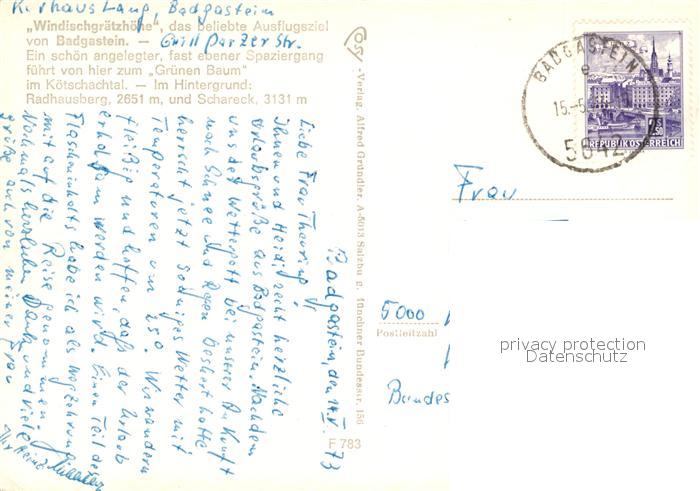 Kurhaus Lang, Badgastein
„Windischgrätzhöhe“, das beliebte Ausflugsziel
von Badgastein. — Grillparzer Str.
Ein schön angelegter, fast ebener Spaziergang
führt von hier zum „Grünen Baum“
im Kötschachtal. — Im Hintergrund:
Radhausberg, 2651 m, und Schareck, 3131 m
Badgastein, den 14.V.73
Liebe Frau
Ihnen und Heidi recht herzliche
Urlaubsgrüße aus Badgastein. Nachdem
uns der Wettergott bei unserer Ankunft
noch Schnee und Regen beschert hatte
herrscht jetzt sonniges Wetter mit
Temperaturen um 25°. Wir wandern
fleißig und hoffen, daß der Urlaub
erholsam werden wird. Einen Teil des
Flascheninhalts habe ich als Wegzehrung
mit auf die Reise genommen.
Nochmals herzlichen Dank und viele
Grüße auch von meiner Frau
Ihr Heinz
Verlag Alfred Gründler, A-5013 Salzburg, Münchner Bundesstr. 156
F 783
BADGASTEIN
e
15.-5.
5642
REPUBLIK ÖSTERREICH
Frau
5000
Postleitzahl
Bundes
privacy protection
Datenschutz